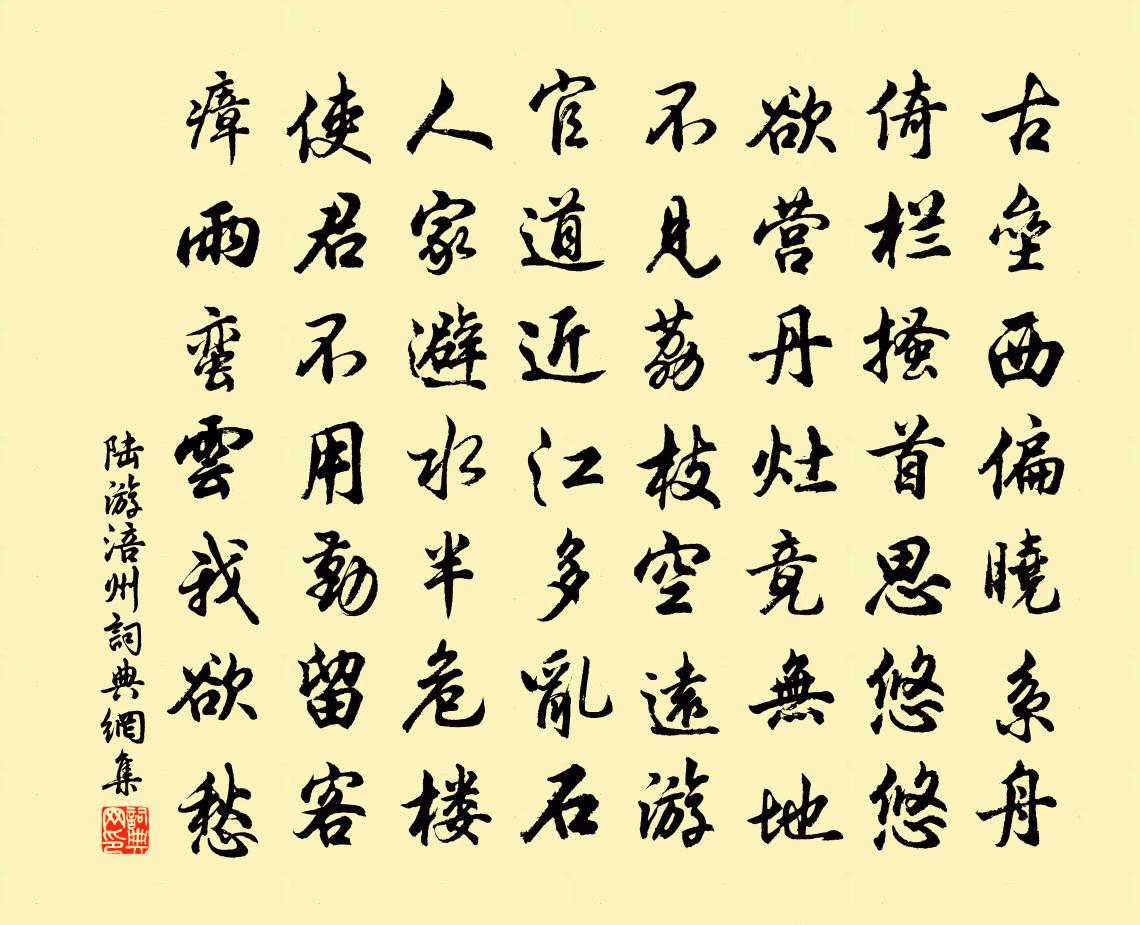 古壘西偏曉系舟
倚栏搔首思悠悠
欲营丹灶竟無地
不見荔枝空遠游
官道近江多亂石
人家避水半危楼
使君不用勤留客
瘴雨蛮雲我欲愁
陆游涪州詞典網集
詞典網印